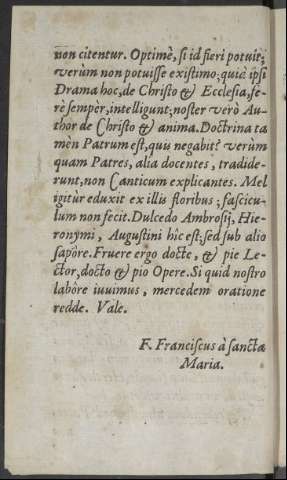 non citentur. Optimè, si id fieri potuit;
verùm non potuisse existimo; quia ipsi
Drama hoc, de Christo & Ecclesia, fe-
rè sempèr, intelligunt; noster verò Au-
thor de Christo & anima. Doctrina ta
mèn Patrum est, quis negabit? verùm
quam Patres, alia docentes, tradide-
runt, non Canticum explicantes. Mel
igitùr eduxit ex illis floribus; fascicu-
lum non fecit. Dulcedo Ambrosij, Hie-
ronymi, Augustini hìc est; sed sub alio
sapòre. Fruere ergo docte, & pie Le-
ctor, docto & pio Opere. Si quid nostro
labòre iuuimus, mercedem oratione
redde. Vale.
F. Franciscus à sanctæ
Maria.